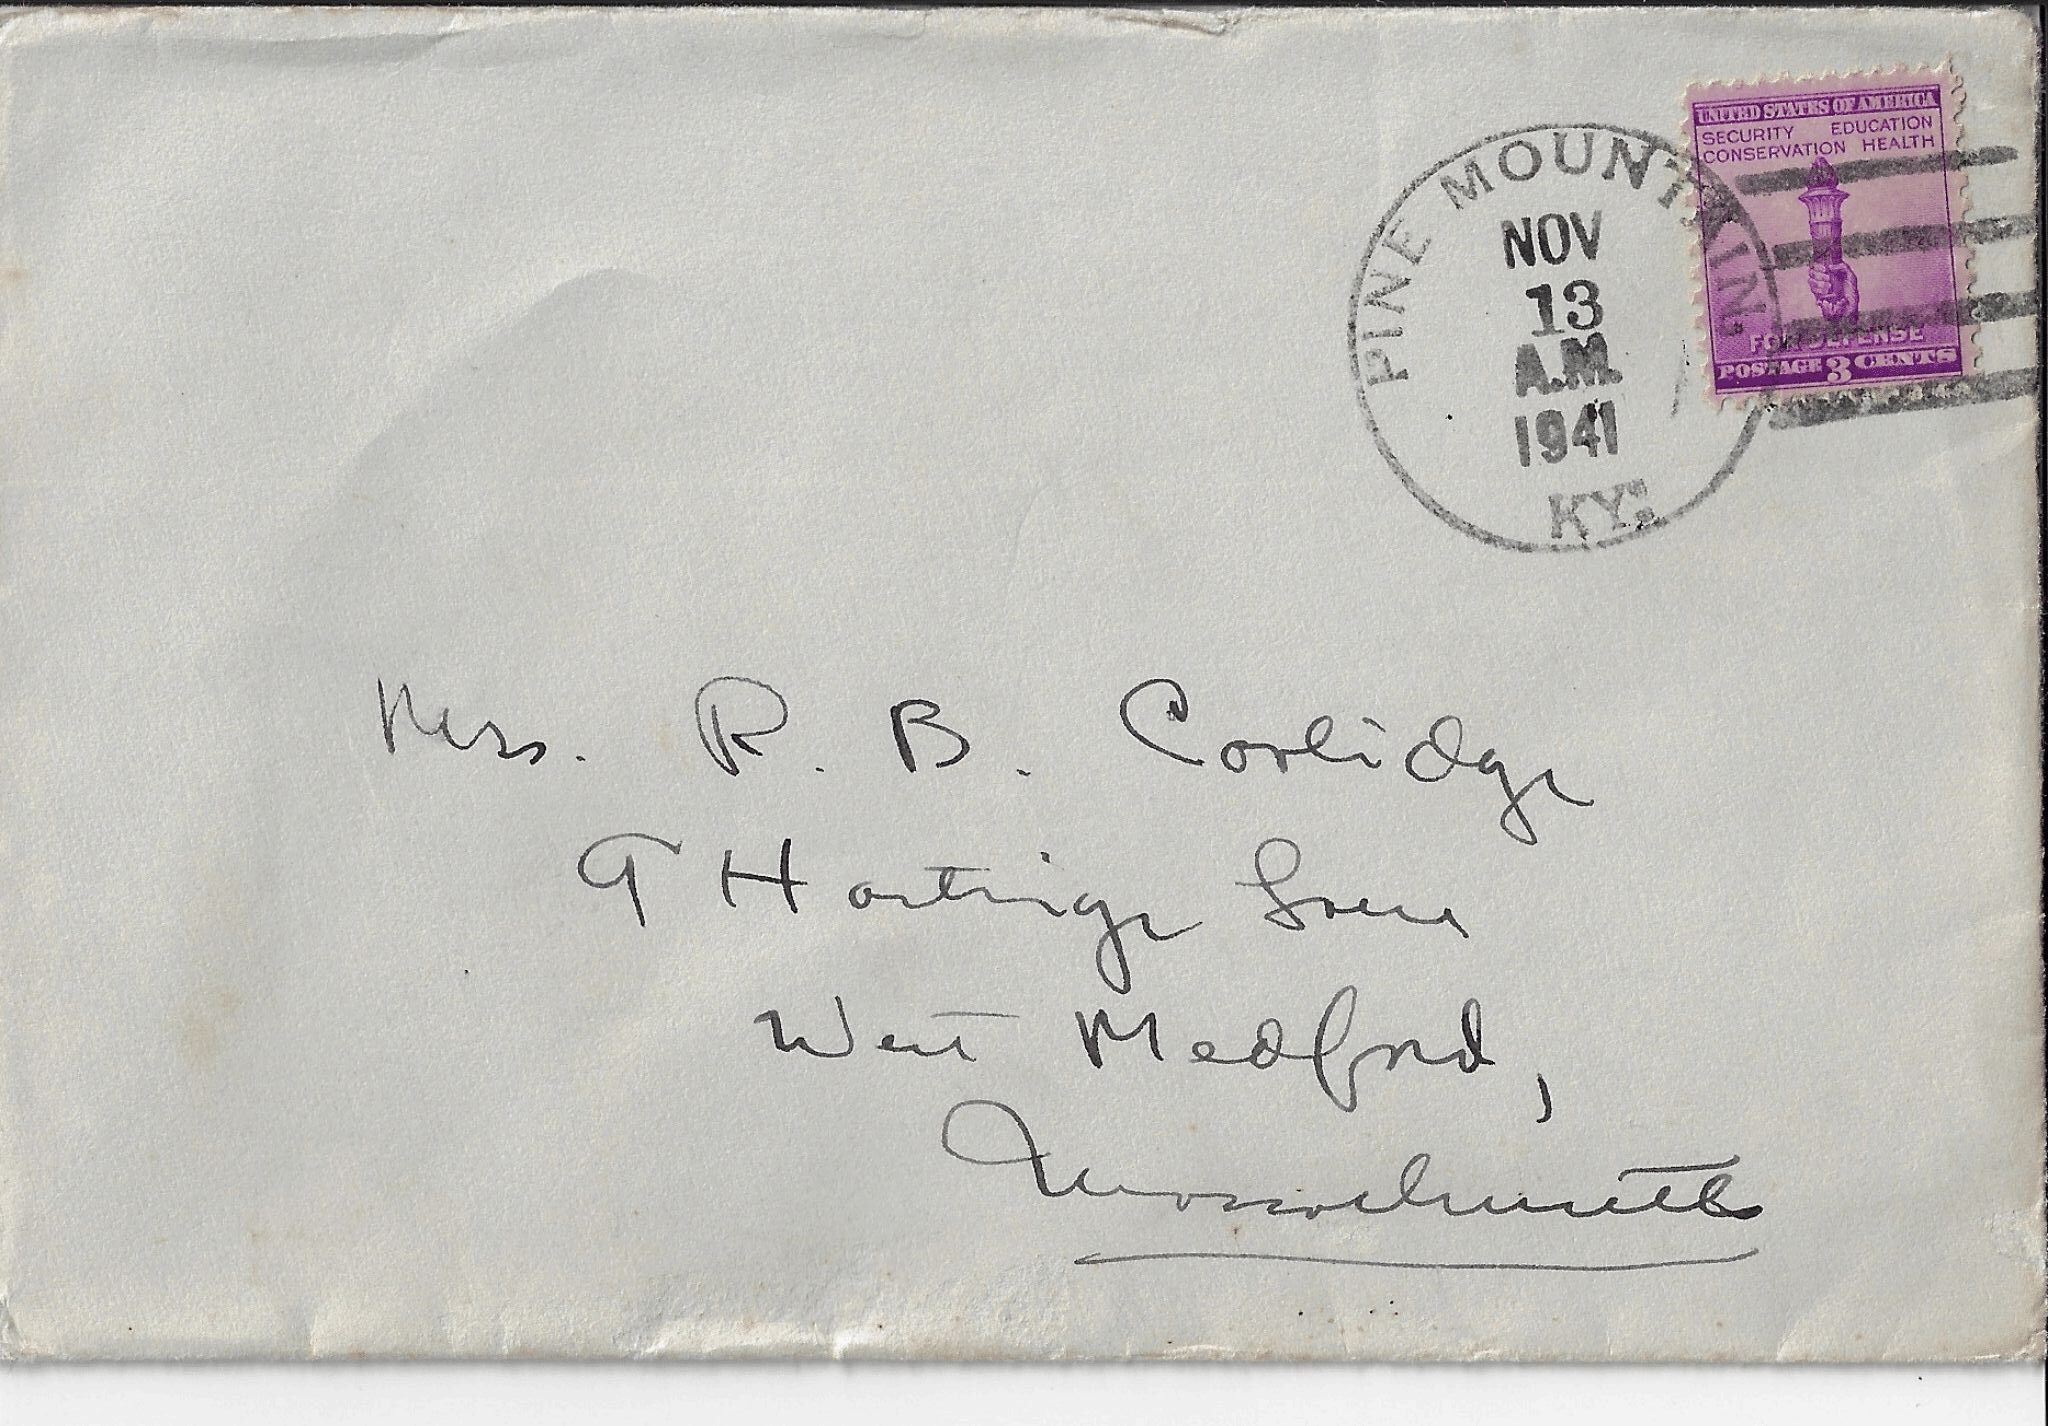 UNITED STATES OF AMERICA
SECURITY EDUCATION
CONSERVATION HEALTH
FOR DEFENSE
POSTAGE 3 CENTS
PINE MOUNTAIN
NOV
13
A.M.
1941
KY.
Mrs. R. B. Coolidge
9 Hastings Lane
West Medford,
Massachusetts